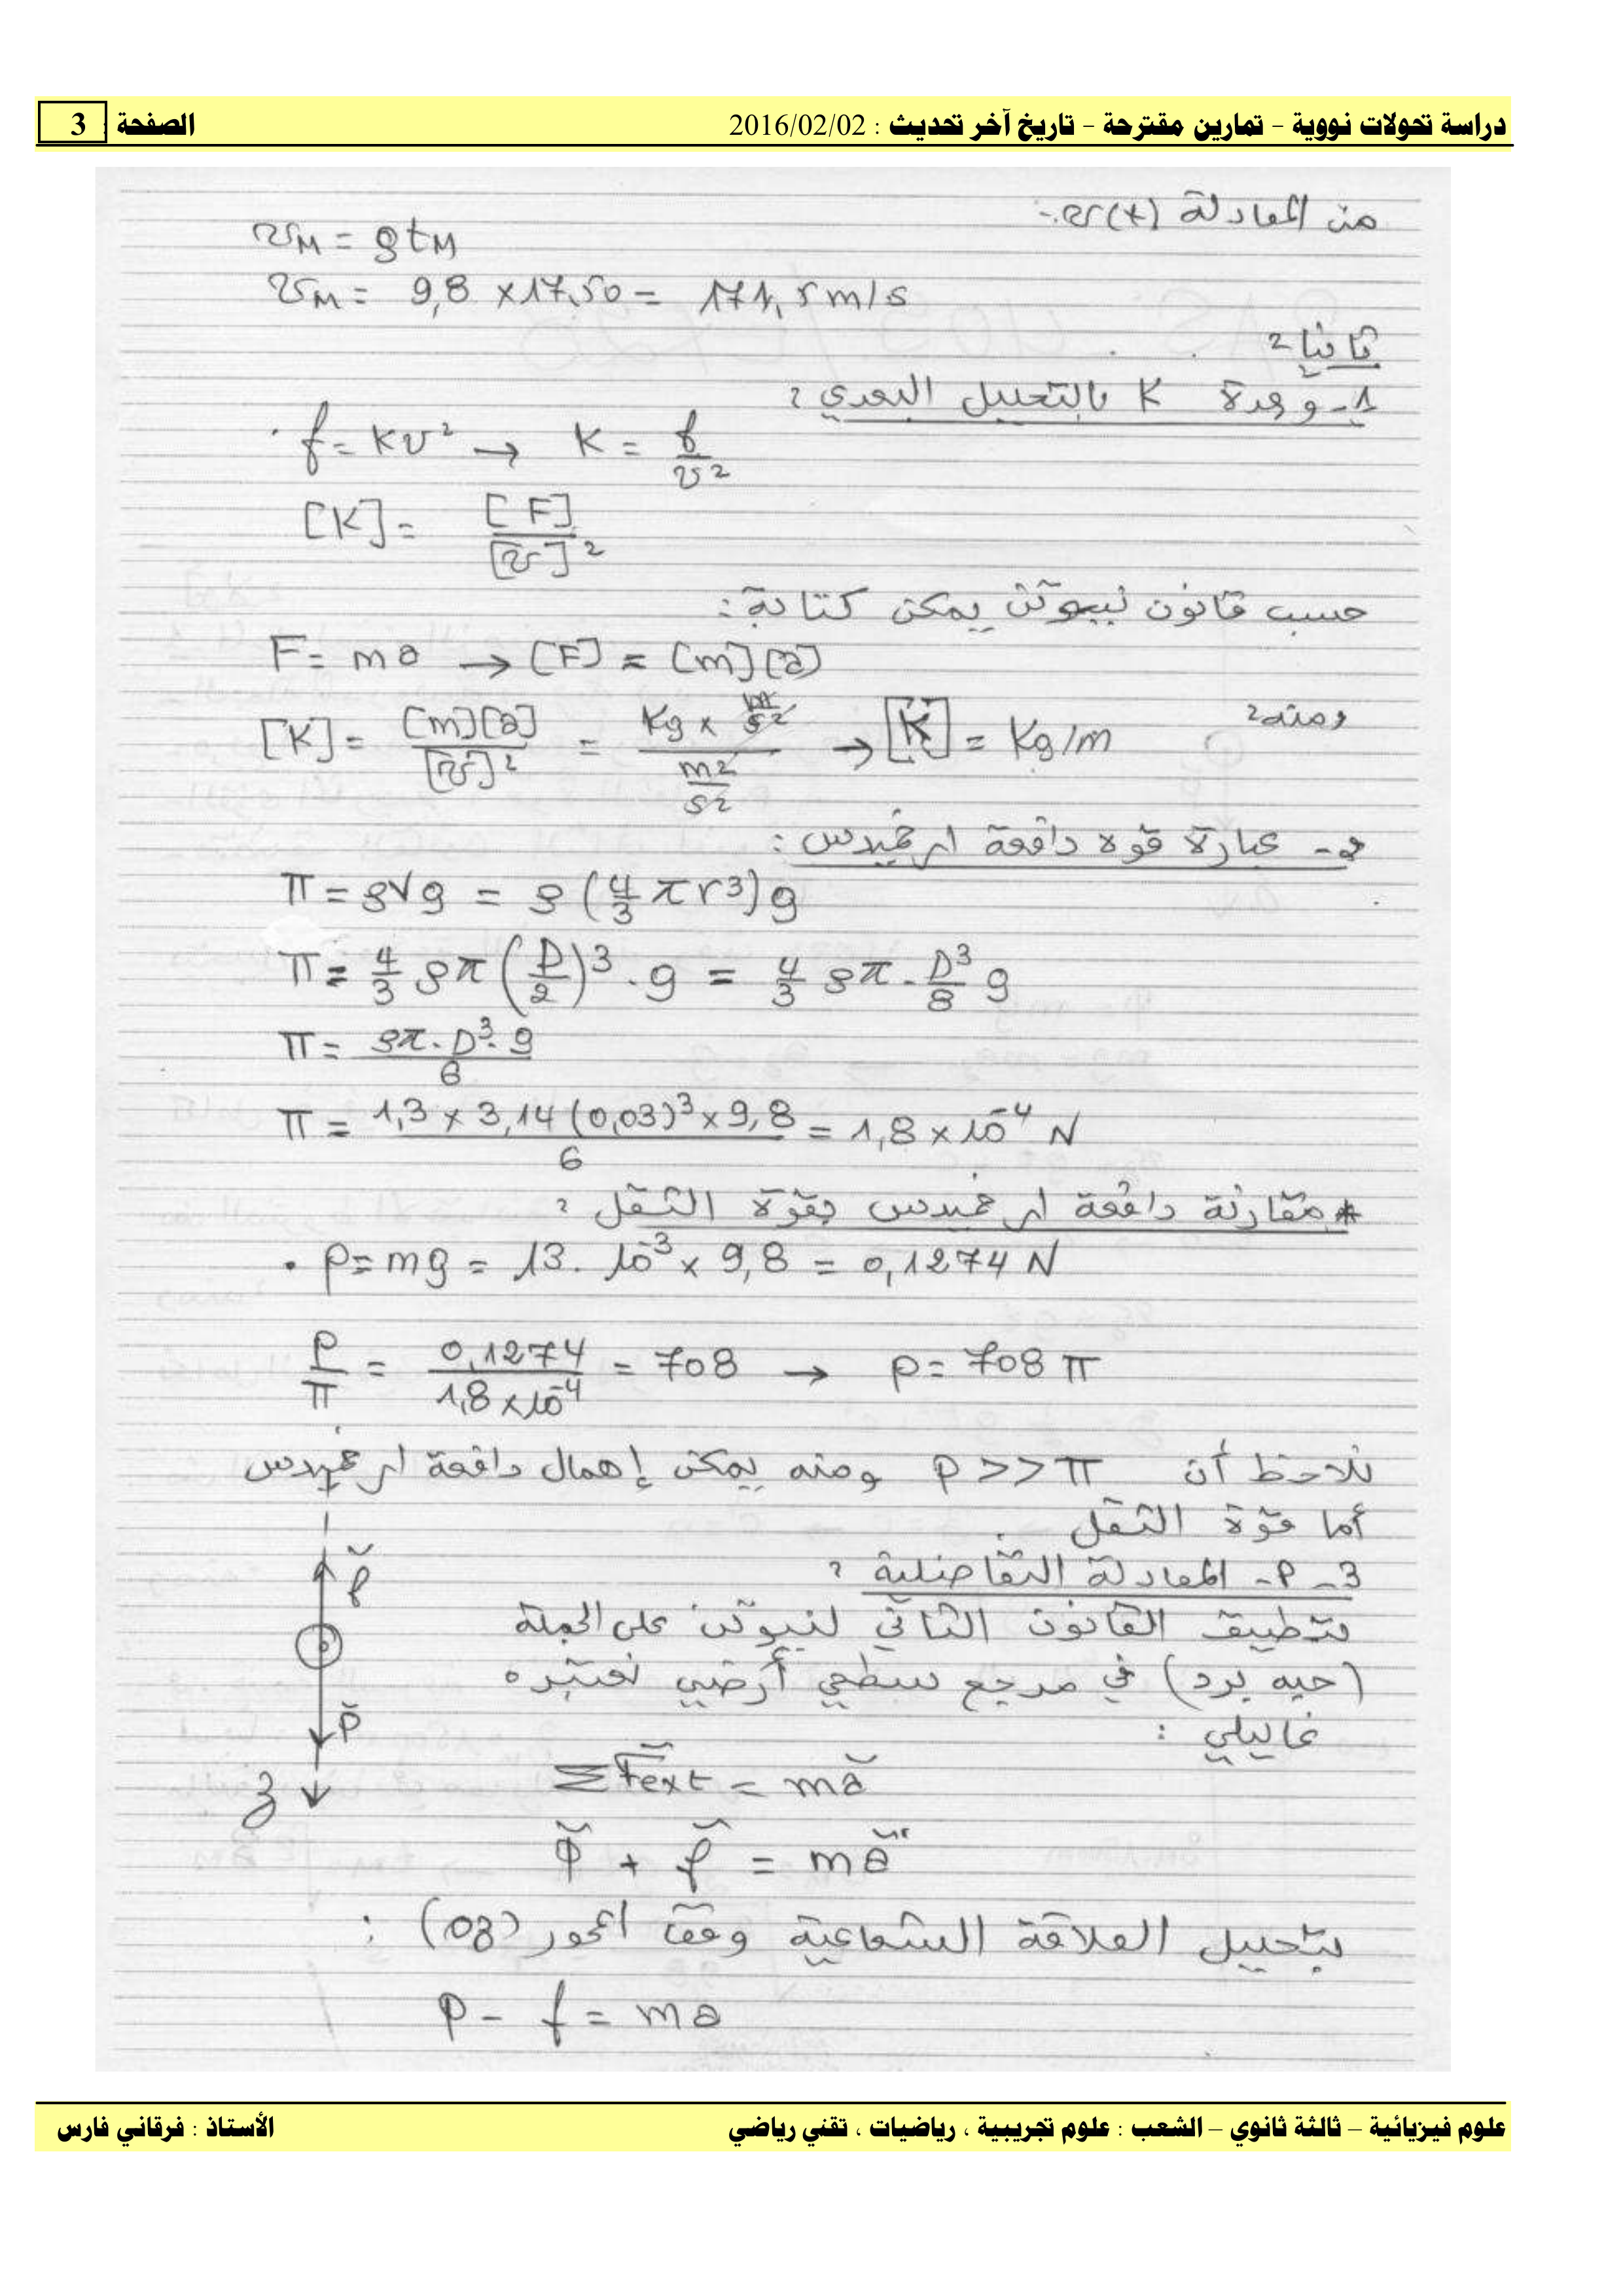 دراسة تحولات نووية - تمارين مقترحة - تاريخ آخر تحديث : 2016/02/02 الصفحة : 3
من المعادلة v(t) :
v_M = g t_M
v_M = 9,8 × 17,50 = 171,5 m/s
ثانيا :
1- وحدة K بالتحليل البعدي :
f = K v² → K = f / v²
[K] = [F] / [v]²
حسب قانون نيوتن يمكن كتابة :
F = m a → [F] = [m][a]
ومنه : [K] = [m][a] / [v]² = (Kg × m/s²) / (m²/s²) → [K] = Kg/m
2- عبارة قوة دافعة ارخميدس :
Π = ρVg = ρ (4/3 π r³) g
Π = 4/3 ρπ (D/2)³ . g = 4/3 ρπ . D³/8 g
Π = ρπ . D³ . g / 6
Π = 1,3 × 3,14 (0,03)³ × 9,8 / 6 = 1,8 × 10⁻⁴ N
* مقارنة دافعة ارخميدس بقوة الثقل :
• P = mg = 13 . 10⁻³ × 9,8 = 0,1274 N
P / Π = 0,1274 / 1,8 × 10⁻⁴ = 708 → P = 708 Π
نلاحظ أن P >> Π ومنه يمكن إهمال دافعة ارخميدس
أما قوة الثقل .
3- P - المعادلة التفاضلية :
بتطبيق القانون الثاني لنيوتن على الجملة
(حبه برد) في مرجع سطحي أرضي نعتبره
غاليلي :
f
P
z
Σ F ext = m a
P + f = m a
بتحليل العلاقة الشعاعية وفق المحور (oz) :
P - f = m a
علوم فيزيائية – ثالثة ثانوي – الشعب : علوم تجريبية ، رياضيات ، تقني رياضي الأستاذ : فرقاني فارس